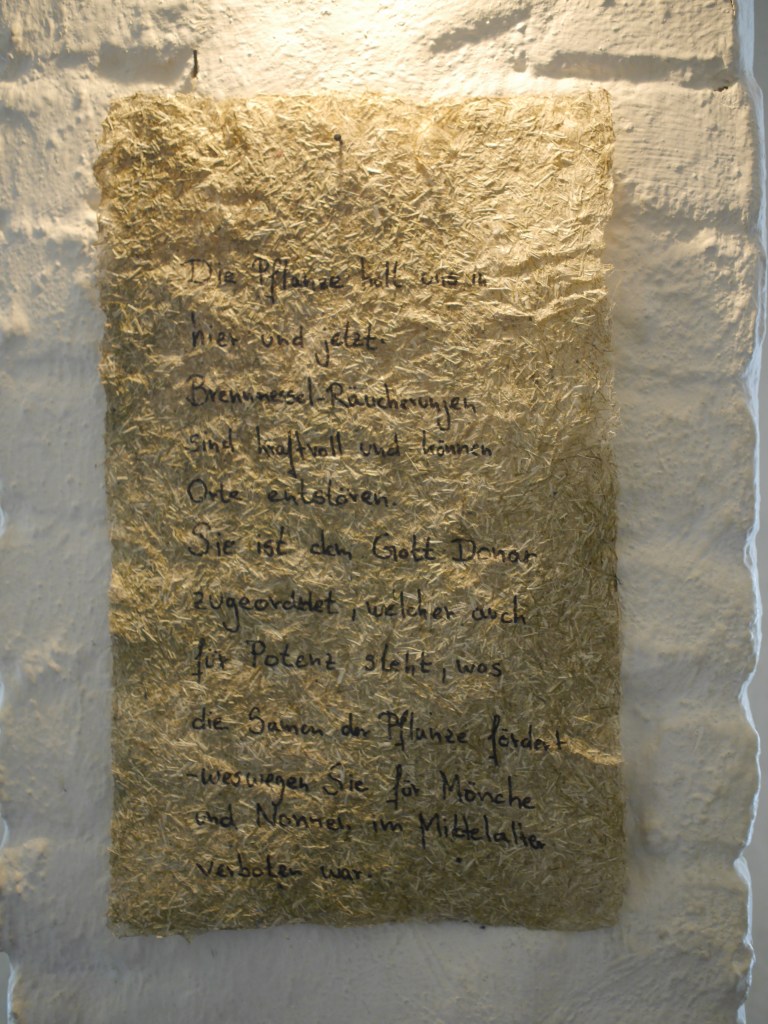 Die Pflanze holt uns in
hier und jetzt.
Brennnessel-Räucherungen
sind kraftvoll und können
Orte entstören.
Sie ist dem Gott Donar
zugeordnet, welcher auch
für Potenz steht, was
die Samen der Pflanze fördert
-weswegen Sie für Mönche
und Nonnen im Mittelalter
verboten war.